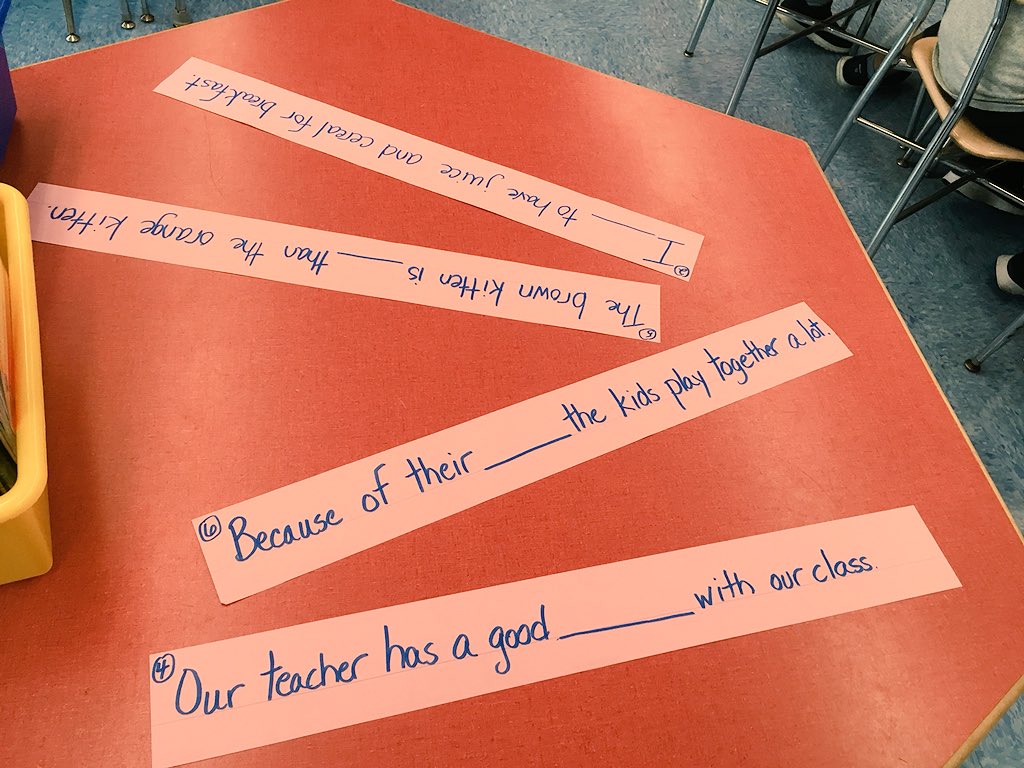 ② I ______ to have juice and cereal for breakfast.
⑤ The brown kitten is ______ than the orange kitten.
⑥ Because of their ______ the kids play together a lot.
④ Our teacher has a good ______ with our class.